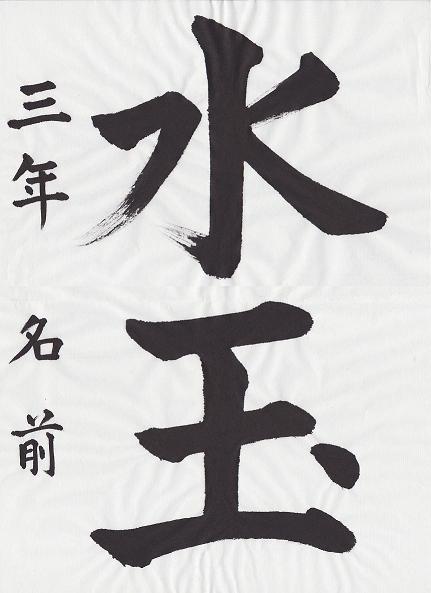 水玉
三年 名前